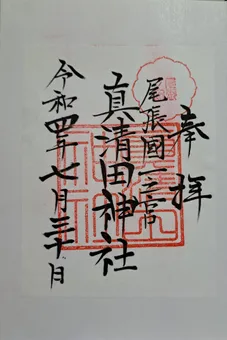 奉拝
尾張國一之宮
真清田神社
令和四年七月三十日